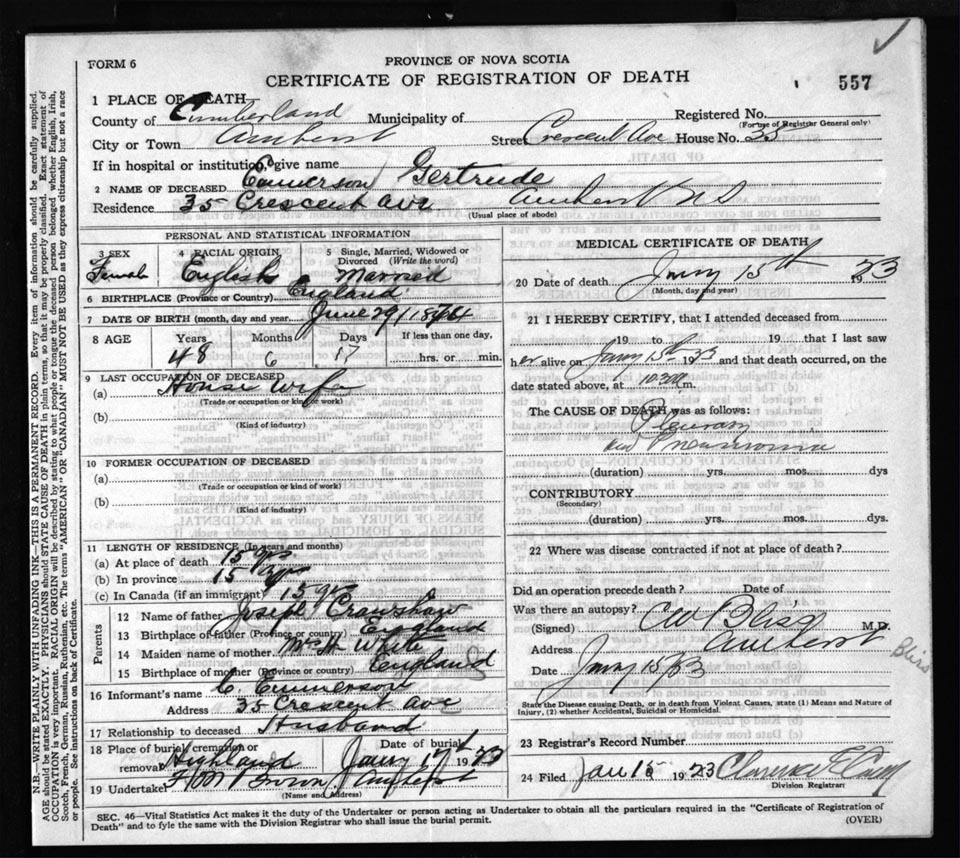 FORM 6
PROVINCE OF NOVA SCOTIA
CERTIFICATE OF REGISTRATION OF DEATH
557
1 PLACE OF DEATH
County of Cumberland Municipality of
Registered No.
(For use of Registrar General only)
City or Town Amherst Street Crescent Ave House No. 35
If in hospital or institution, give name
2 NAME OF DECEASED Emmerson Gertrude
Residence 35 Crescent Ave Amherst NS
(Usual place of abode)
PERSONAL AND STATISTICAL INFORMATION
3 SEX 4 RACIAL ORIGIN 5 Single, Married, Widowed or Divorced (Write the word)
Female English Married
6 BIRTHPLACE (Province or Country) England
7 DATE OF BIRTH (month, day and year) June 29/1874
8 AGE Years Months Days If less than one day,
48 6 17 hrs. or min.
9 LAST OCCUPATION OF DECEASED
(a) House wife
(Trade or occupation or kind of work)
(b)
(Kind of industry)
10 FORMER OCCUPATION OF DECEASED
(a)
(Trade or occupation or kind of work)
(b)
(Kind of industry)
11 LENGTH OF RESIDENCE (In years and months)
(a) At place of death 15 yrs
(b) In province 15 yrs
(c) In Canada (if an immigrant) 15 yrs
Parents
12 Name of father Joseph Crawshaw
13 Birthplace of father (Province or country) England
14 Maiden name of mother White
15 Birthplace of mother (Province or country) England
16 Informant's name C. Emmerson
Address 35 Crescent Ave
17 Relationship to deceased Husband
18 Place of burial, cremation or removal Highland Date of burial Jany 17th 1923
19 Undertaker Brown Amherst
(Name and Address)
MEDICAL CERTIFICATE OF DEATH
20 Date of death Jany 15th 1923
(Month, day and year)
21 I HEREBY CERTIFY, that I attended deceased from
19 to 19 , that I last saw
her alive on Jany 15th 1923 and that death occurred, on the
date stated above, at 10.30 m.
The CAUSE OF DEATH was as follows:
Pleurisy
and Pneumonia
(duration) yrs. mos. dys
CONTRIBUTORY
(Secondary)
(duration) yrs. mos. dys.
22 Where was disease contracted if not at place of death?
Did an operation precede death? Date of
Was there an autopsy?
(Signed) CW Bliss M.D.
Address Amherst
Bliss
Date Jany 15/23
State the Disease causing Death, or in death from Violent Causes, state (1) Means and Nature of
Injury, (2) whether Accidental, Suicidal or Homicidal.
23 Registrar's Record Number
24 Filed Jan 15 1923
Division Registrar
SEC. 46—Vital Statistics Act makes it the duty of the Undertaker or person acting as Undertaker to obtain all the particulars required in the "Certificate of Registration of
Death" and to fyle the same with the Division Registrar who shall issue the burial permit.
(OVER)
N.B.—WRITE PLAINLY WITH UNFADING INK—THIS IS A PERMANENT RECORD. Every item of information should be carefully supplied.
AGE should be stated EXACTLY. PHYSICIANS should STATE CAUSE OF DEATH in plain terms, so that it may be properly classified. Exact statement of
OCCUPATION is very important. RACIAL ORIGIN will be described by stating to what people or tongue the deceased person belonged whether English, Irish,
Scotch, French, German, Russian, Ruthenian, etc. The terms "AMERICAN" OR "CANADIAN" MUST NOT BE USED as they express citizenship but not a race
or people. See instructions on back of Certificate.